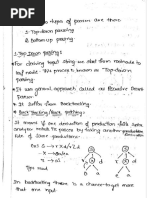 types of parsers are there
1. Top down parsing
2. Bottom up parsing
1. Top Down Parsing:-
* For deriving input string we start from root node to
leaf node. This process is known as Top-down
parsing
* It is general approach called as Recursive Descent
Parser
* It suffers from Backtracking.
* Back Tracking/Back
It means if one derivation of production fails syntax
analyzer restart the process by taking another production
rule of same production.
Ex:- S → xXd / xZd
X → /
Z →
In backtracking there is a chance to get more
that one input